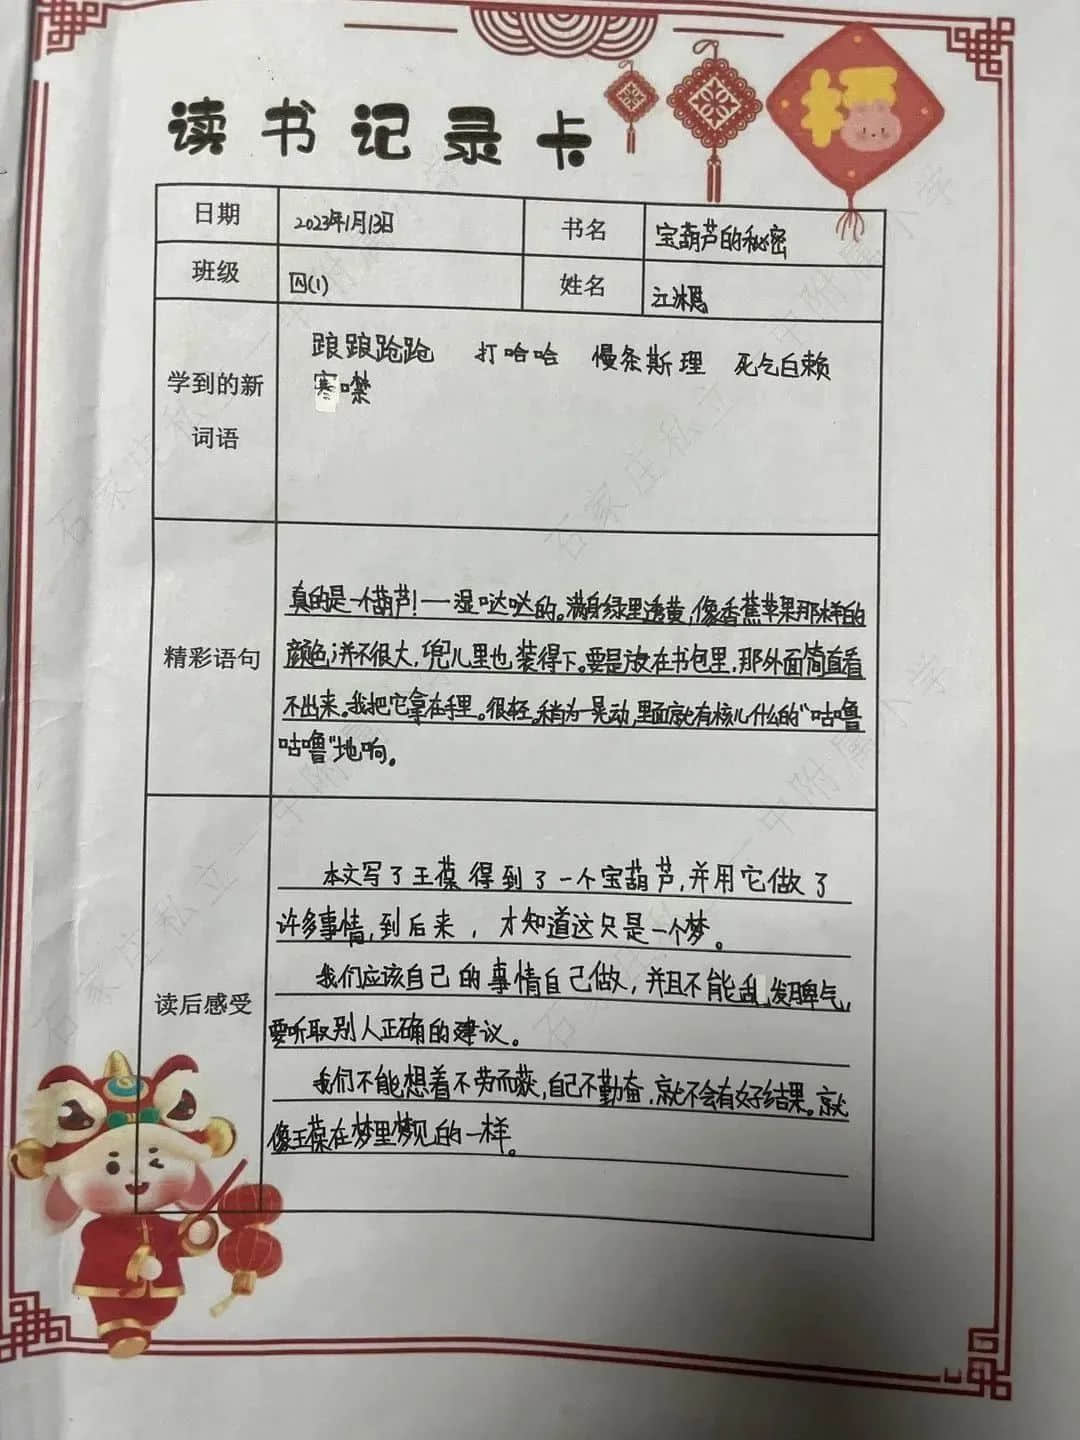 福
读书记录卡
日期 2023年1月13日 书名 宝葫芦的秘密
班级 四(1) 姓名 江冰
学到的新
词语
踉踉跄跄 打哈哈 慢条斯理 死气白赖
寒噤
精彩语句
真的是一个葫芦!一湿哒哒的。满身绿里透黄,像香蕉苹果那样的
颜色,并不很大,兜儿里也装得下。要是放在书包里,那外面简直看
不出来。我把它拿在手里。很轻。稍为一晃动,里面就有核儿什么的“咕噜
咕噜”地响。
读后感受
本文写了王葆得到了一个宝葫芦,并用它做了
许多事情,到后来,才知道这只是一个梦。
我们应该自己的事情自己做,并且不能乱发脾气,
要听取别人正确的建议。
我们不能想着不劳而获,自己不勤奋,就不会有好结果。就
像王葆在梦里梦见的一样。
石家庄私立一中附属小学